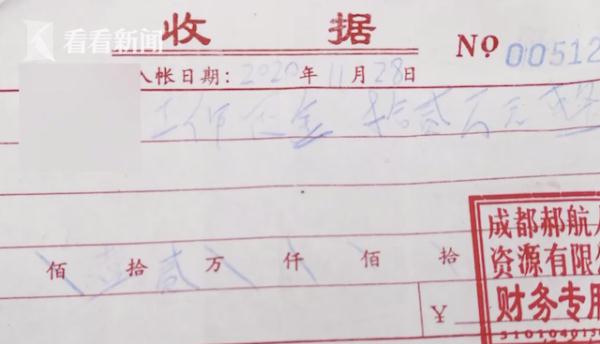 看看新闻
收 据
№ 00512
入帐日期: 2020 年 11 月 28 日
工作 金 拾贰万元整
佰 壹 拾 贰 万 仟 佰 拾
¥
成都郝航人
资源有限公
财务专用
510104013